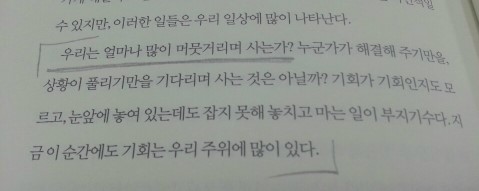 수 있지만, 이러한 일들은 우리 일상에 많이 나타난다.
우리는 얼마나 많이 머뭇거리며 사는가? 누군가가 해결해 주기만을,
상황이 풀리기만을 기다리며 사는 것은 아닐까? 기회가 기회인지도 모
르고, 눈앞에 놓여 있는데도 잡지 못해 놓치고 마는 일이 부지기수다. 지
금 이 순간에도 기회는 우리 주위에 많이 있다.